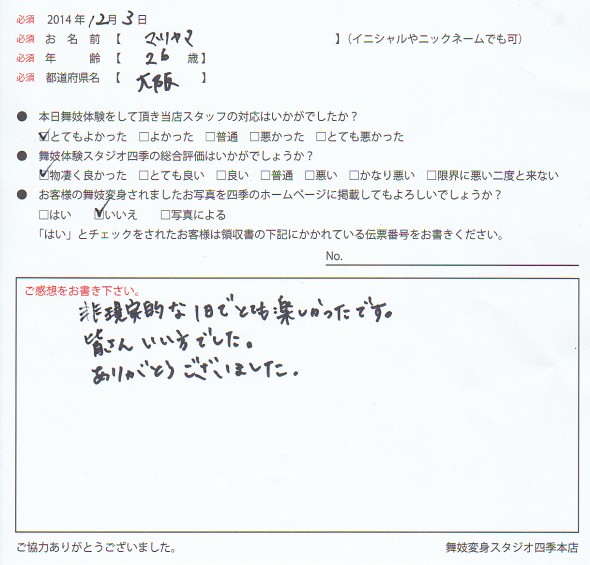 必須 2014年12月3日
必須 お名前【 マツヤマ 】(イニシャルやニックネームでも可)
必須 年齢【 26 歳】
必須 都道府県名【 大阪 】
● 本日舞妓体験をして頂き当店スタッフの対応はいかがでしたか?
☑とてもよかった □よかった □普通 □悪かった □とても悪かった
● 舞妓体験スタジオ四季の総合評価はいかがでしょうか?
☑物凄く良かった □とても良い □良い □普通 □悪い □かなり悪い □限界に悪い二度と来ない
● お客様の舞妓変身されましたお写真を四季のホームページに掲載してもよろしいでしょうか?
□はい ☑いいえ □写真による
「はい」とチェックをされたお客様は領収書の下記にかかれている伝票番号をお書きください。
No.
ご感想をお書き下さい。
非現実的な1日でとても楽しかったです。
皆さんいい方でした。
ありがとうございました。
ご協力ありがとうございました。
舞妓変身スタジオ四季本店